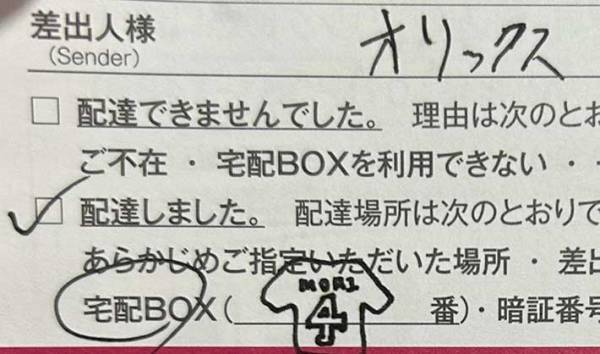 差出人様 オリックス
(Sender)
□ 配達できませんでした。 理由は次のとお
ご不在 ・ 宅配BOXを利用できない ・
□ 配達しました。 配達場所は次のとおりで
あらかじめご指定いただいた場所 ・ 差出
宅配BOX( MORI 4 番)・暗証番号